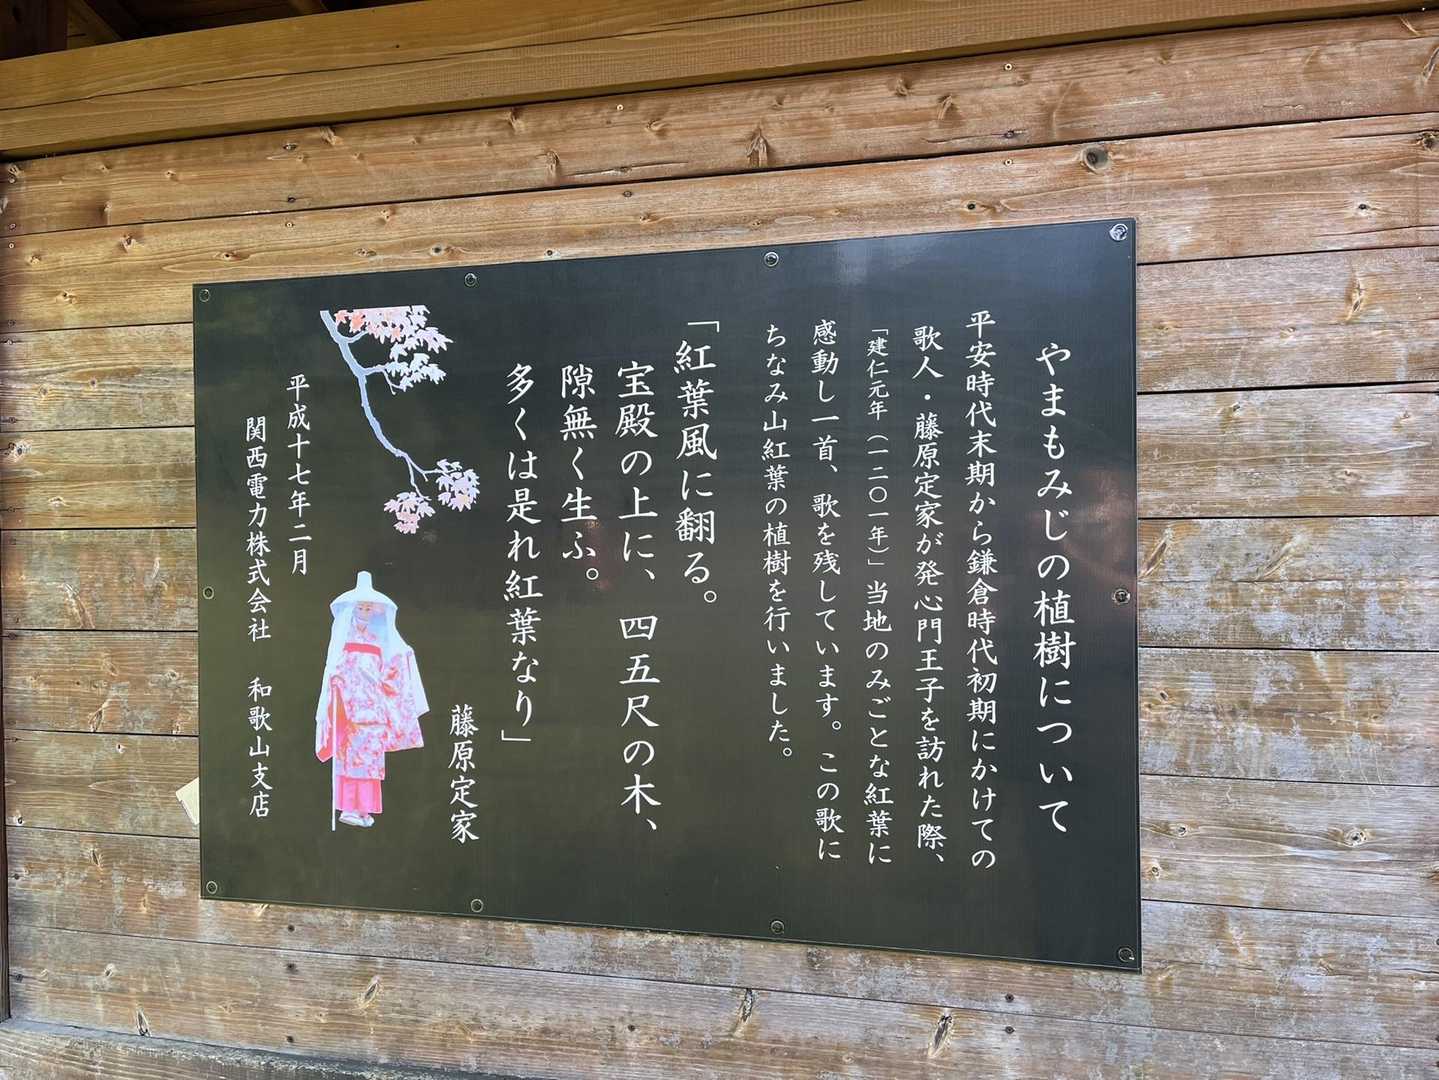 やまもみじの植樹について
平安時代末期から鎌倉時代初期にかけての
歌人・藤原定家が発心門王子を訪れた際、
「建仁元年(一二〇一年)」当地のみごとな紅葉に
感動し一首、歌を残しています。この歌に
ちなみ山紅葉の植樹を行いました。
「紅葉風に翻る。
宝殿の上に、四五尺の木、
隙無く生ふ。
多くは是れ紅葉なり」
藤原定家
平成十七年二月
関西電力株式会社 和歌山支店